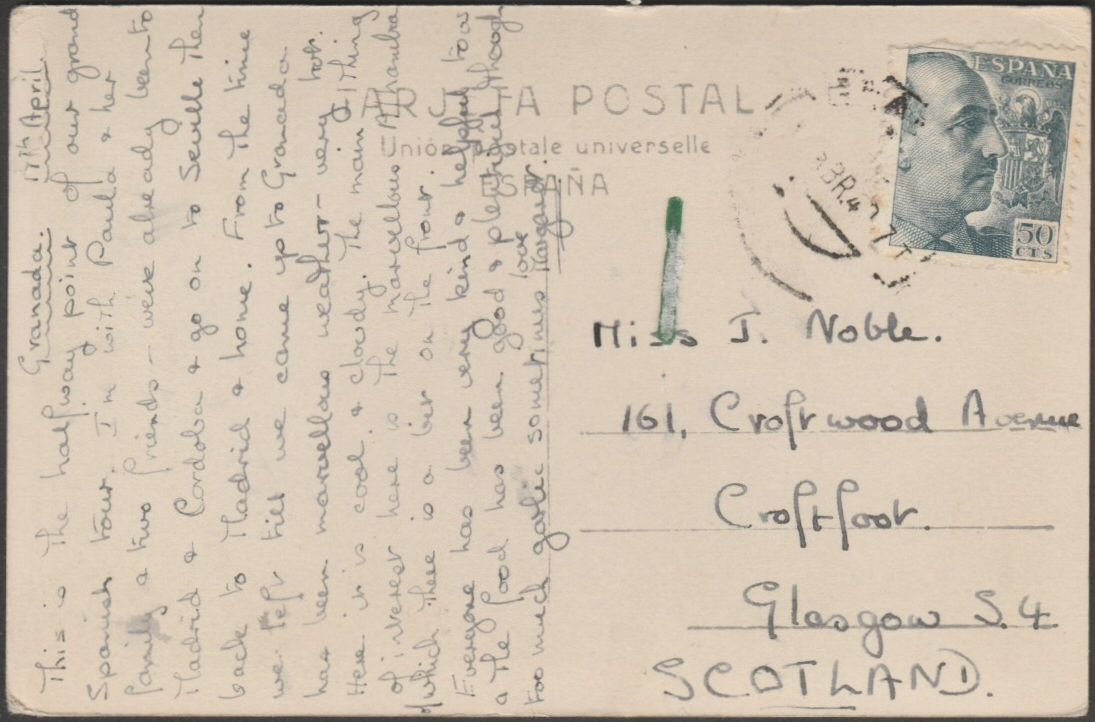 TARJETA POSTAL
Unión postale universelle
ESPAÑA
ESPAÑA
CORREOS
50
CTS
Granada. 17th April.
This is the halfway point of our grand
Spanish tour. I'm with Paula & her
family & two friends - we've already been to
Madrid & Cordoba & go on to Seville then
back to Madrid & home. From the time
we left till we came up to Granada
has been marvellous weather - very hot.
Here it is cool & cloudy. The main thing
of interest here is the marvellous Alhambra
of which there is a bit on the front.
Everyone has been very kind & helpful to us
& the food has been good & plentiful though
too much garlic sometimes!
love
Margaret.
Miss J. Noble.
161, Croftwood Avenue
Croftfoot.
Glasgow S.4
SCOTLAND.